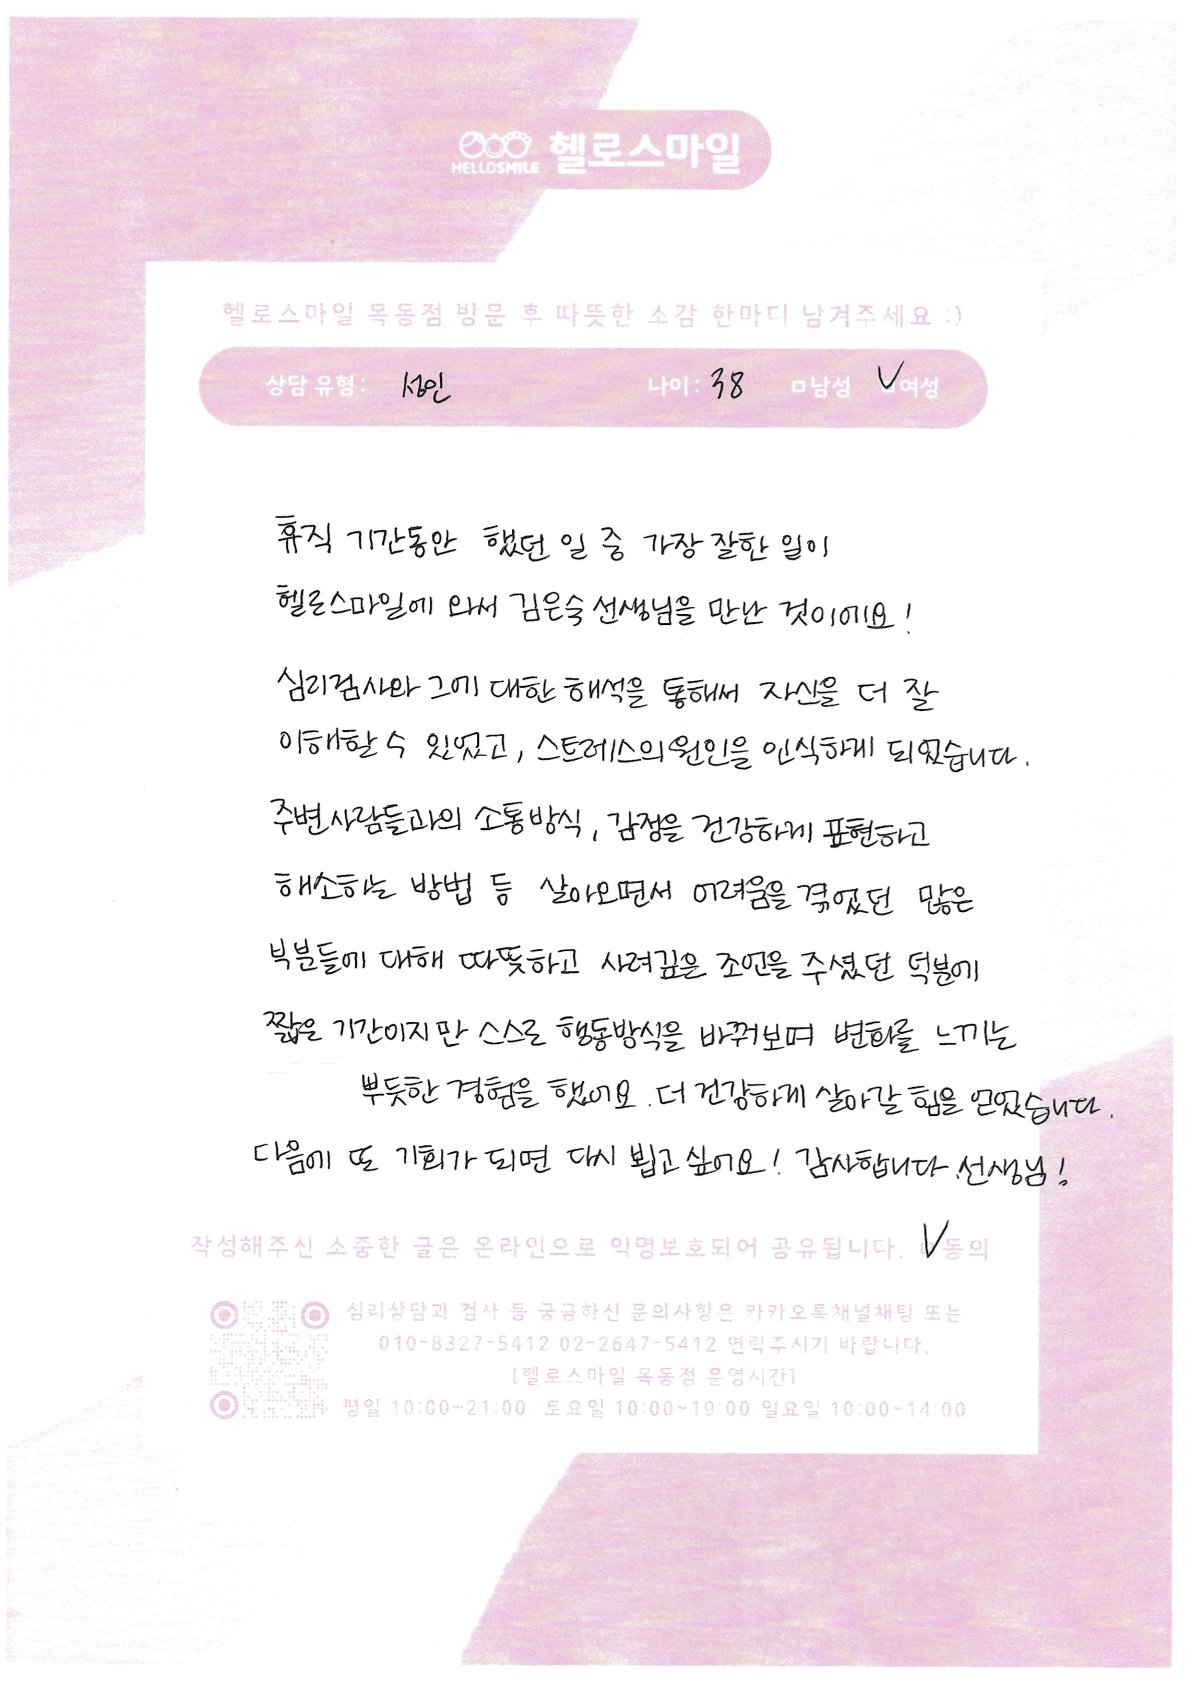 HELLOSMILE 헬로스마일
헬로스마일 목동점 방문 후 따뜻한 소감 한마디 남겨주세요 :)
상담 유형 : 성인 나이 : 38 □남성 V여성
휴직 기간동안 했던 일 중 가장 잘한 일이
헬로스마일에 와서 김은숙 선생님을 만난 것이에요!
심리검사와 그에 대한 해석을 통해서 자신을 더 잘
이해할 수 있었고, 스트레스의 원인을 인식하게 되었습니다.
주변사람들과의 소통방식, 감정을 건강하게 표현하고
해소하는 방법 등 살아오면서 어려움을 겪었던 많은
부분들에 대해 따뜻하고 사려깊은 조언을 주셨던 덕분에
짧은 기간이지만 스스로 행동방식을 바꿔보며 변화를 느끼는
뿌듯한 경험을 했어요. 더 건강하게 살아갈 힘을 얻었습니다.
다음에 또 기회가 되면 다시 뵙고 싶어요! 감사합니다. 선생님!
작성해주신 소중한 글은 온라인으로 익명보호되어 공유됩니다. V동의
심리상담과 검사 등 궁금하신 문의사항은 카카오톡채널채팅 또는
010-8327-5412 02-2647-5412 연락주시기 바랍니다.
[헬로스마일 목동점 운영시간]
평일 10:00~21:00 토요일 10:00~19:00 일요일 10:00~14:00